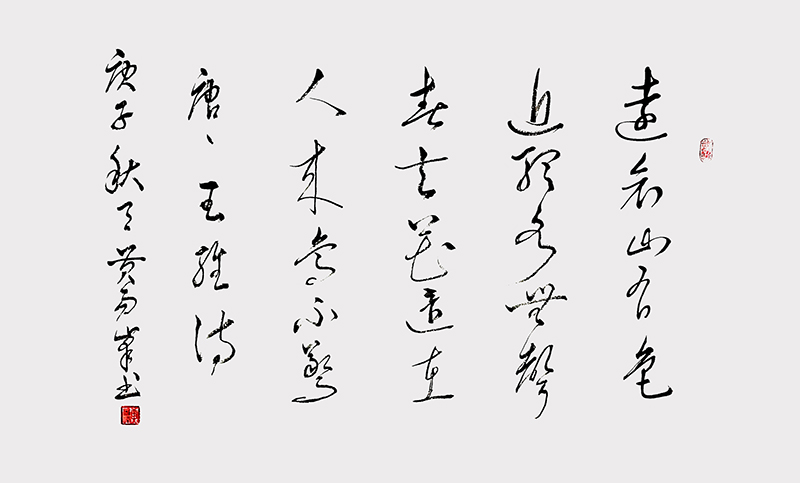 遠看山有色
近聽水無聲
春去花還在
人來鳥不驚
唐、王維詩
庚子秋天黄峯书